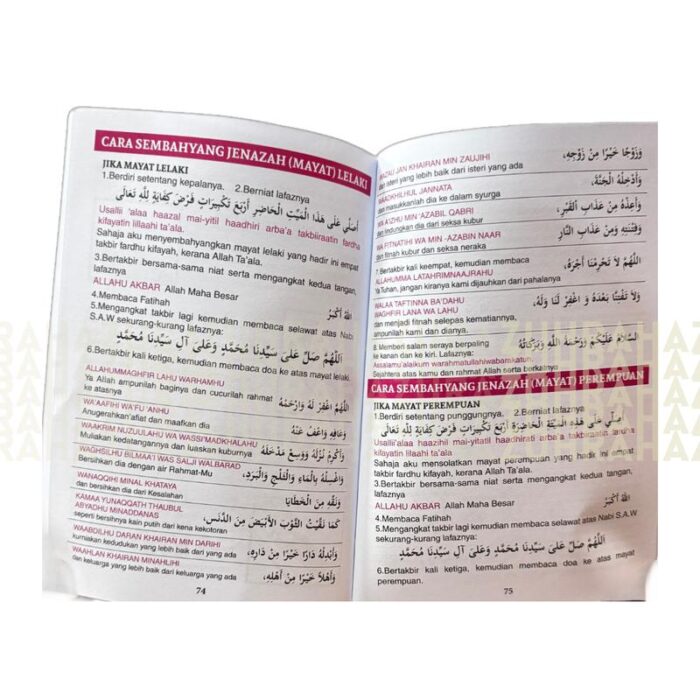 CARA SEMBAHYANG JENAZAH (MAYAT) LELAKI
JIKA MAYAT LELAKI
1.Berdiri setentang kepalanya. 2.Berniat lafaznya
أُصَلِّى عَلَى هَذَا الْمَيِّتِ الْحَاضِرِ أَرْبَعَ تَكْبِيرَاتٍ فَرْضَ كِفَايَةٍ لِلّٰهِ تَعَالَى
Usallii 'alaa haazal mai-yitil haadhiri arba'a takbiiraatin fardha
kifayatin lillaahi ta'ala.
Sahaja aku menyembahyangkan mayat lelaki yang hadir ini empat
takbir fardhu kifayah, kerana Allah Ta'ala.
3.Bertakbir bersama-sama niat serta mengangkat kedua tangan,
lafaznya
ALLAHU AKBAR Allah Maha Besar
اللهُ أَكْبَرُ
4.Membaca Fatihah
5.Mengangkat takbir lagi kemudian membaca selawat atas Nabi
S.A.W sekurang-kurang lafaznya:
اَللّٰهُمَّ صَلِّ عَلَى سَيِّدِنَا مُحَمَّدٍ وَعَلَى آلِ سَيِّدِنَا مُحَمَّدٍ
6.Bertakbir kali ketiga, kemudian membaca doa ke atas mayat
ALLAHUMMAGHFIR LAHU WARHAMHU
Ya Allah ampunilah baginya dan cucurilah rahmat
ke atasnya
اَللّٰهُمَّ اغْفِرْ لَهُ وَارْحَمْهُ
WA'AAFIHI WA'FU 'ANHU
Anugerahkan'afiat dan maafkan dia
وَعَافِهِ وَاعْفُ عَنْهُ
WAAKRIM NUZUULAHU WA WASSI'MADKHALAHU
Muliakan kedatangannya dan luaskan kuburnya
وَأَكْرِمْ نُزُلَهُ وَوَسِّعْ مَدْخَلَهُ
WAGHSILHU BILMAA'I WAS SALJI WALBARAD
Bersihkan dia dengan air Rahmat-Mu
وَاغْسِلْهُ بِالْمَاءِ وَالثَّلْجِ وَالْبَرَدِ،
WANAQQIHI MINAL KHATAYA
dan bersihkan dia dari Kesalahan
وَنَقِّهِ مِنَ الْخَطَايَا
KAMAA YUNAQQATH THAUBUL
ABYADHU MINADDANAS
seperti bersihnya kain putih dari kena kekotoran
كَمَا نَقَّيْتَ الثَّوْبَ الْأَبْيَضَ مِنَ الدَّنَسِ،
WAABDILHU DARAN KHAIRAN MIN DARIHI
kurniakan kedudukan yang lebih baik dari yang ada
وَأَبْدِلْهُ دَارًا خَيْرًا مِنْ دَارِهِ،
WAAHLAN KHAIRAN MINAHLIHI
dan keluarga yang lebih baik dari keluarga yang ada
وَأَهْلًا خَيْرًا مِنْ أَهْلِهِ،
74
WAZAU JAN KHAIRAN MIN ZAUJIHI
dan isteri yang lebih baik dari isteri yang ada
وَزَوْجًا خَيْرًا مِنْ زَوْجِهِ،
WAADKHILHUL JANNATA
dan masukkanlah dia ke dalam syurga
وَأَدْخِلْهُ الْجَنَّةَ،
WA A'ZHU MIN 'AZABIL QABRI
dan lindungkan dia dari seksa kubur
وَأَعِذْهُ مِنْ عَذَابِ الْقَبْرِ،
WA FITNATIHI WA MIN -AZABIN NAAR
dan fitnah kubur dan seksa neraka
وَفِتْنَتِهِ وَمِنْ عَذَابِ النَّارِ
7.Bertakbir kali keempat, kemudian membaca
ALLAHUMMA LATAHRIMNAAJRAHU
Ya Tuhan, jangan kiranya kami dijauhkan dari pahalanya
اَللّٰهُمَّ لَا تَحْرِمْنَا أَجْرَهُ،
WALAA TAFTINNA BA'DAHU
WAGHFIR LANA WA LAHU
dan menjadi fitnah selepas kematiannya,
ampunilah kami dan dianya.
وَلَا تَفْتِنَّا بَعْدَهُ وَ اغْفِرْ لَنَا وَلَهُ،
8.Memberi salam seraya berpaling
ke kanan dan ke kiri. Lafaznya:
اَلسَّلَامُ عَلَيْكُمْ وَرَحْمَةُ اللهِ وَبَرَكَاتُهُ
Assalamu'alaikum warahmatullahiwabarakatuh.
Sejahtera atas kamu dan rahmat Allah serta berkatnya
CARA SEMBAHYANG JENAZAH (MAYAT) PEREMPUAN
JIKA MAYAT PEREMPUAN
1.Berdiri setentang punggungnya. 2.Berniat lafaznya
أُصَلِّى عَلَى هَذِهِ الْمَيِّتَةِ الْحَاضِرَةِ أَرْبَعَ تَكْبِيرَاتٍ فَرْضَ كِفَايَةٍ لِلّٰهِ تَعَالَى
Usallii'alaa haazihil mai-yitatil haadhirati arba'a takbiraatin fardha
kifayatin lillaahi ta'ala.
Sahaja aku mensolatkan mayat perempuan yang hadir ini empat
takbir fardhu kifayah, kerana Allah Ta'ala.
3.Bertakbir bersama-sama niat serta mengangkat kedua tangan,
lafaznya
ALLAHU AKBAR Allah Maha Besar
اللهُ أَكْبَرُ
4.Membaca Fatihah
5.Mengangkat takbir lagi kemudian membaca selawat atas Nabi S.A.W
sekurang-kurang lafaznya:
اَللّٰهُمَّ صَلِّ عَلَى سَيِّدِنَا مُحَمَّدٍ وَعَلَى آلِ سَيِّدِنَا مُحَمَّدٍ
6.Bertakbir kali ketiga, kemudian membaca doa ke atas mayat
perempuan.
75